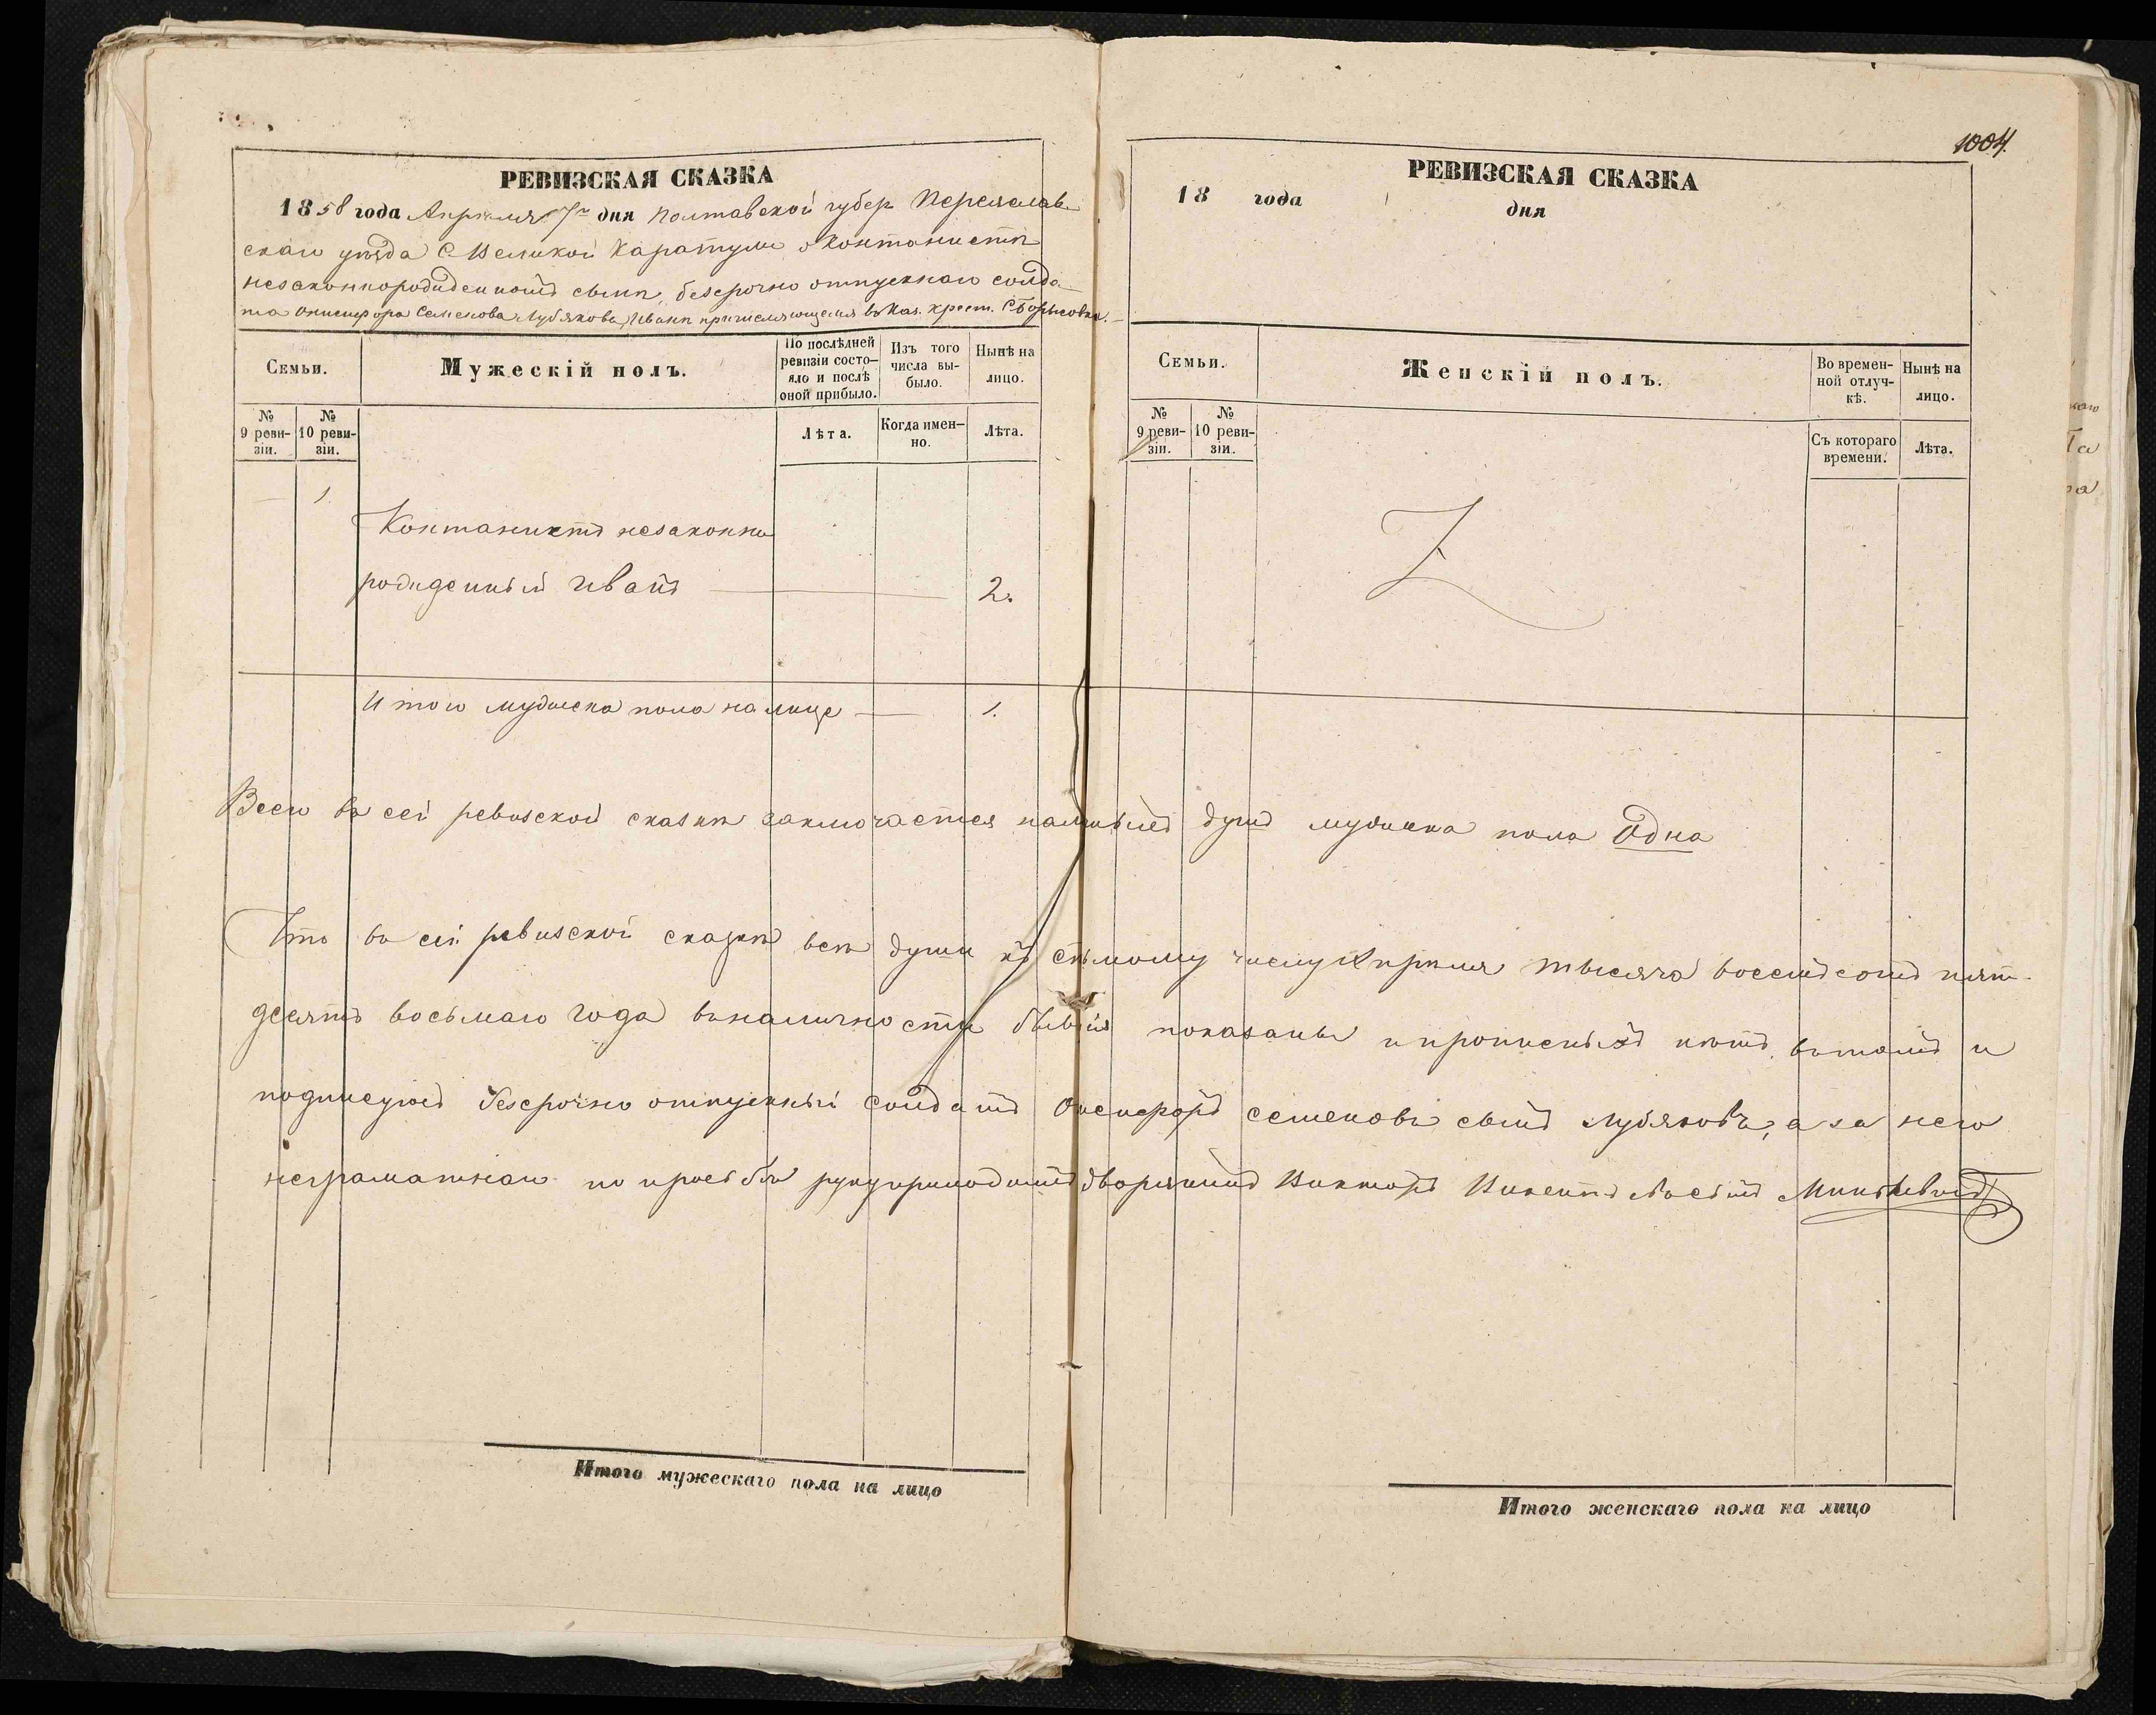 1004.
РЕВИЗСКАЯ СКАЗКА
1858 года Апреля 7го дня Полтавской губер Переяслав
скаго уезда С Великой Каратули о Контонисте
незаконнорожденномъ сыне, безсрочно отпускнаго солда
та Онисифора Семенова Лубякова, Иване причисляющемся въ Каз. крест. С Борисовки.
Семьи.
Мужескій полъ.
По послѣдней
ревизіи состо-
яло и послѣ
оной прибыло.
Изъ того
числа вы-
было.
Нынѣ на
лицо.
№
9 реви-
зіи.
№
10 реви-
зіи.
Лѣта.
Когда имен-
но.
Лѣта.
— 1.
Контанистъ незаконно
рожденный Иванъ 2.
Итого мужеска пола на лице — 1.
РЕВИЗСКАЯ СКАЗКА
18 года дня
Семьи.
Женскій полъ.
Во времен-
ной отлуч-
кѣ.
Нынѣ на
лицо.
№
9 реви-
зіи.
№
10 реви-
зіи.
Съ котораго
времени.
Лѣта.
Всего въ сей ревизской сказке заключается наличныхъ душъ мужеска пола Одна
Что въ сей ревизской сказке все души къ седьмому числу Апреля тысяча восемьсотъ пят-
десятъ восьмаго года въ наличности бывшія показаны и прописныхъ нетъ, въ томъ и
подписуюсь безсрочно отпускный солдатъ Онисифоръ Семеновъ сынъ Лубяковъ, а за него
неграматнаго по прозьбе руку приложилъ дворянинъ Викторъ Викентьевъ сынъ
Итого мужескаго пола на лицо
Итого женскаго пола на лицо